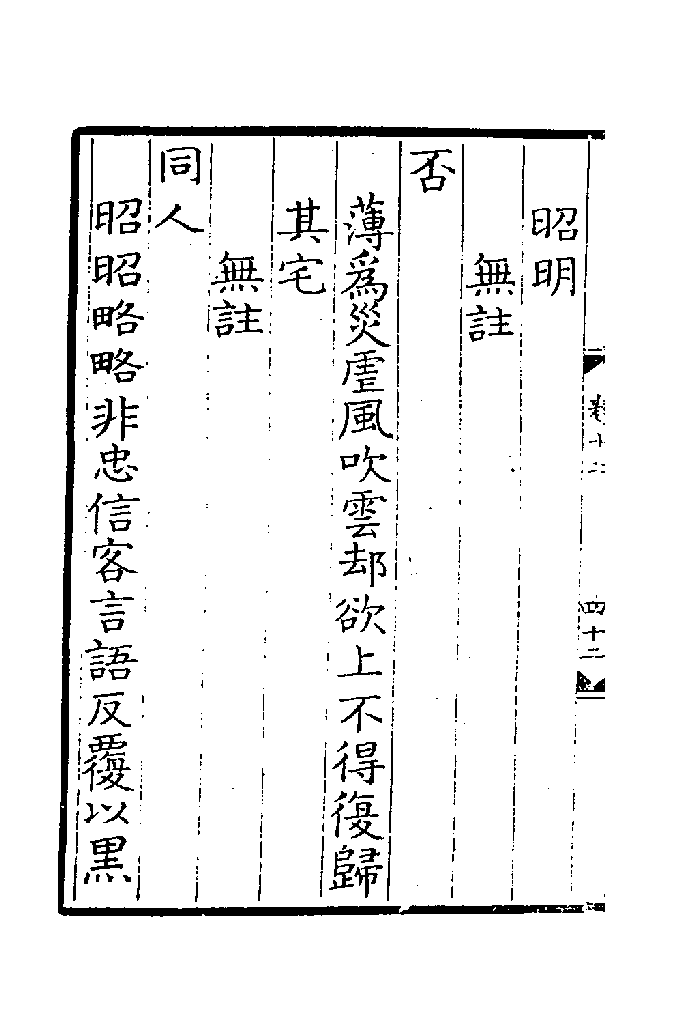 昭明
無註
否
薄爲災虗風吹雲却欲上不得復歸
其宅
無註
同人
昭昭略略非忠信客言語反覆以黒
卷十二
四十二